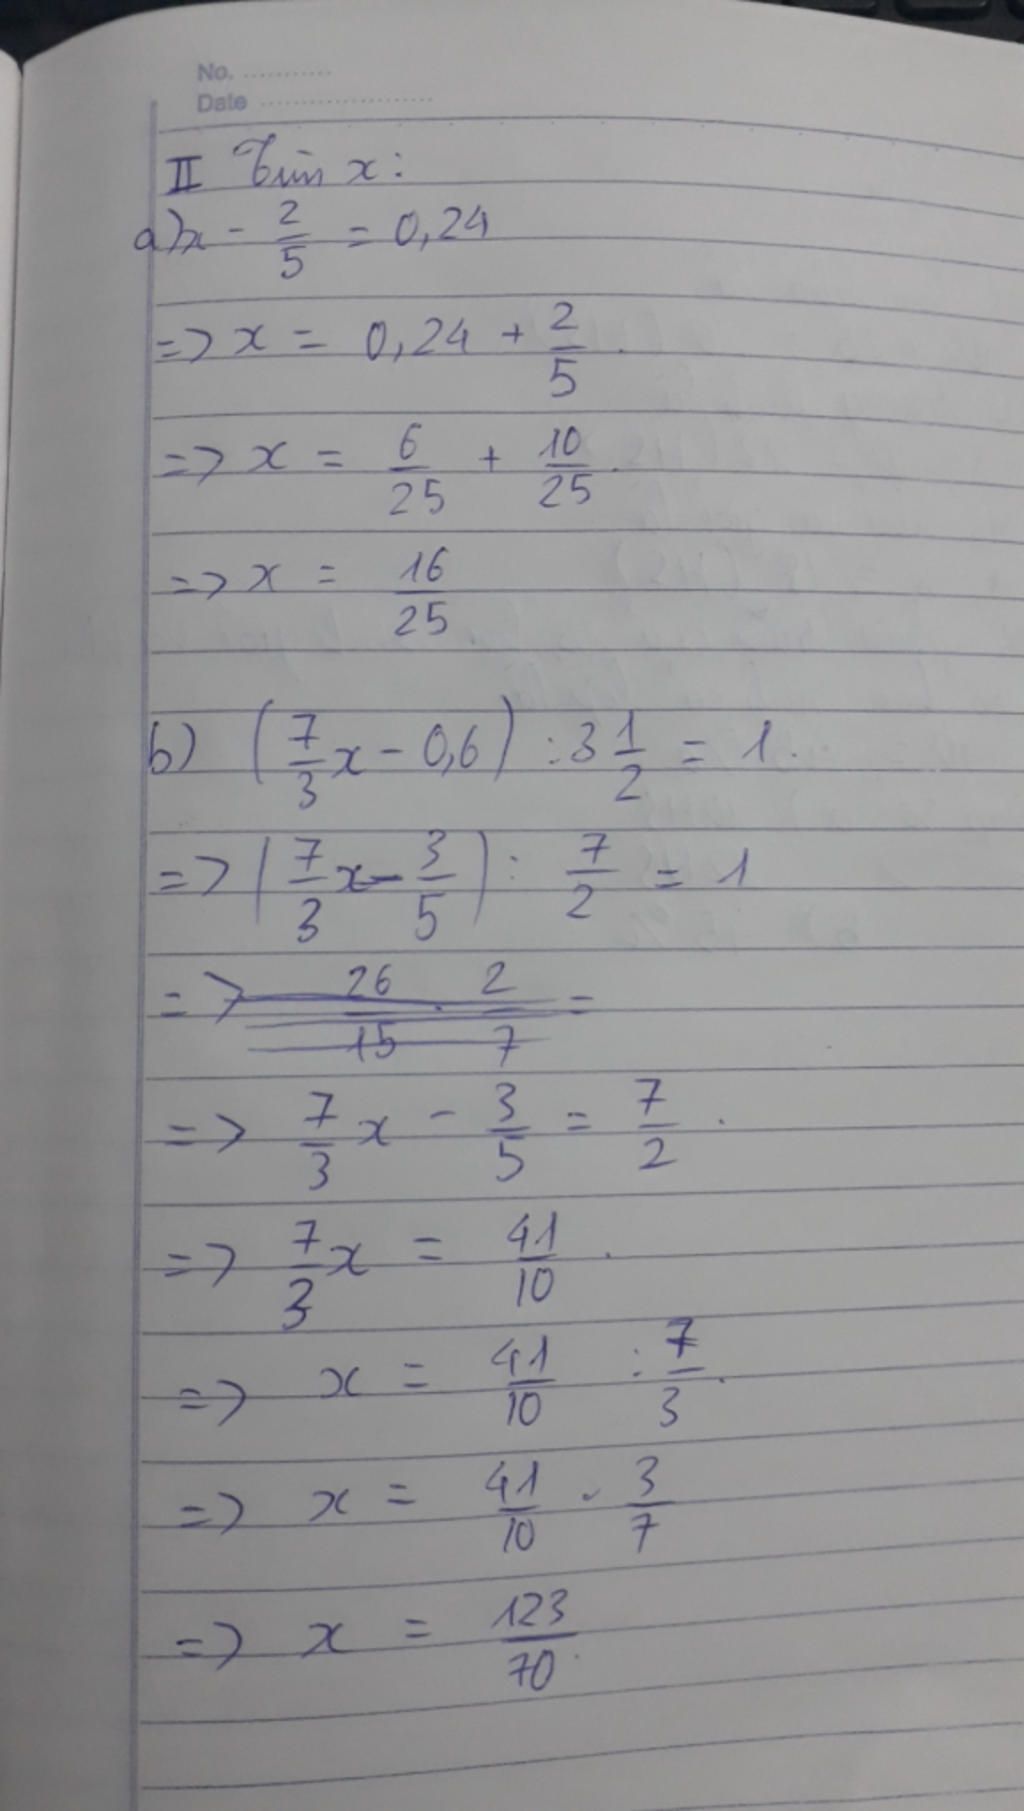 No. ............
Date ......................
II Tìm x:
a) x - 2/5 = 0,24
=> x = 0,24 + 2/5.
=> x = 6/25 + 10/25.
=> x = 16/25
b) (7/3 x - 0,6) : 3 1/2 = 1.
=> (7/3 x - 3/5) : 7/2 = 1
=> 26/15 . 2/7 =
=> 7/3 x - 3/5 = 7/2.
=> 7/3 x = 41/10.
=> x = 41/10 : 7/3.
=> x = 41/10 . 3/7
=> x = 123/70.